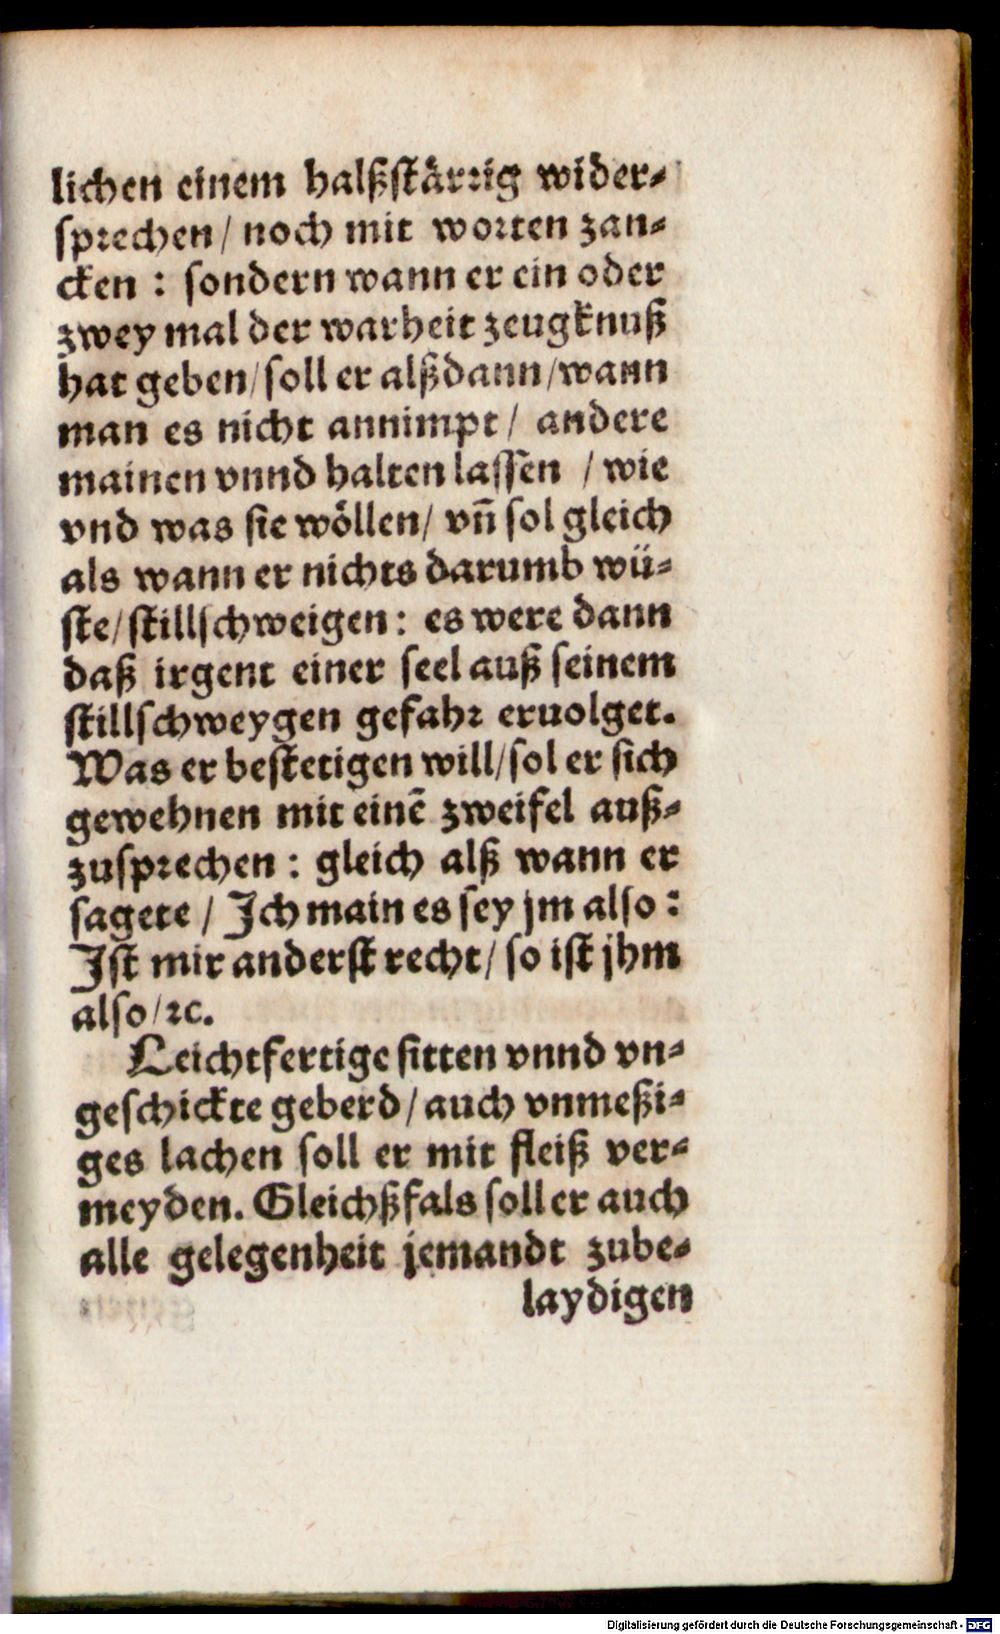 lichen einem halßstärrig wider-
sprechen/ noch mit worten zan-
cken : sondern wann er ein oder
zwey mal der warheit zeugknuß
hat geben/soll er alßdann/wann
man es nicht annimpt/ andere
mainen vnnd halten lassen / wie
vnd was sie wöllen/ vñ sol gleich
als wann er nichts darumb wü-
ste/stillschweigen: es were dann
daß irgent einer seel auß seinem
stillschweygen gefahr eruolget.
Was er bestetigen will/sol er sich
gewehnen mit einē zweifel auß-
zusprechen : gleich alß wann er
sagete / Ich main es sey jm also :
Ist mir anderst recht/ so ist jhm
also/ꝛc.
Leichtfertige sitten vnnd vn-
geschickte geberd/ auch vnmeßi-
ges lachen soll er mit fleiß ver-
meyden. Gleichßfals soll er auch
alle gelegenheit jemandt zube-
laydigen
Digitalisierung gefördert durch die Deutsche Forschungsgemeinschaft - DFG